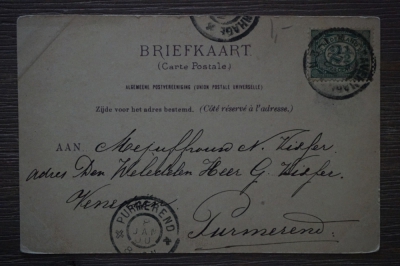 BRIEFKAART.
(Carte Postale.)
ALGEMEENE POSTVEREENIGING (UNION POSTALE UNIVERSELLE)
Zijde voor het adres bestemd. (Côté réservé à l'adresse.)
AAN Mejuffrouw N. Visser
adres Den Weledelen Heer G. Visser.
Purmerend.
PURMEREND
JAN